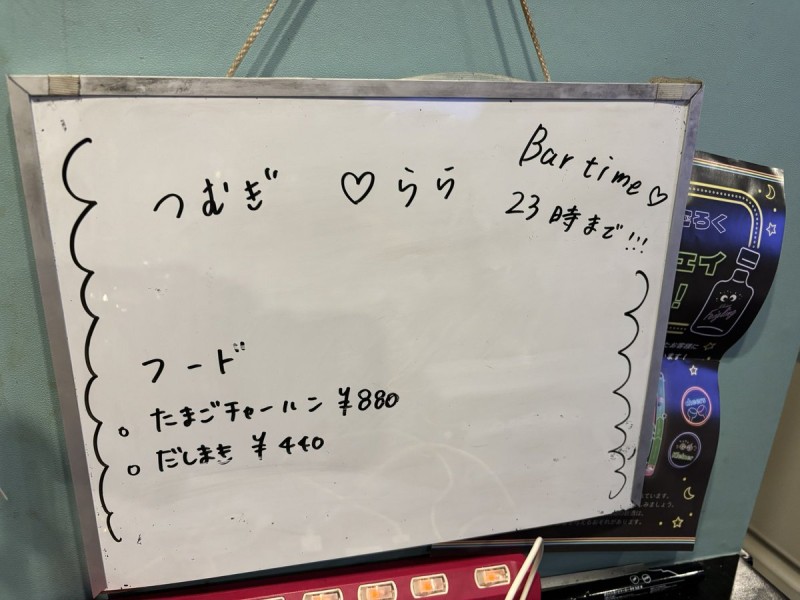 つむぎ ♡らら
Bar time♡
23時まで!!!
フード
○ たまごチャーハン ¥880
○ だしまき ¥440
ろく
エイ
!